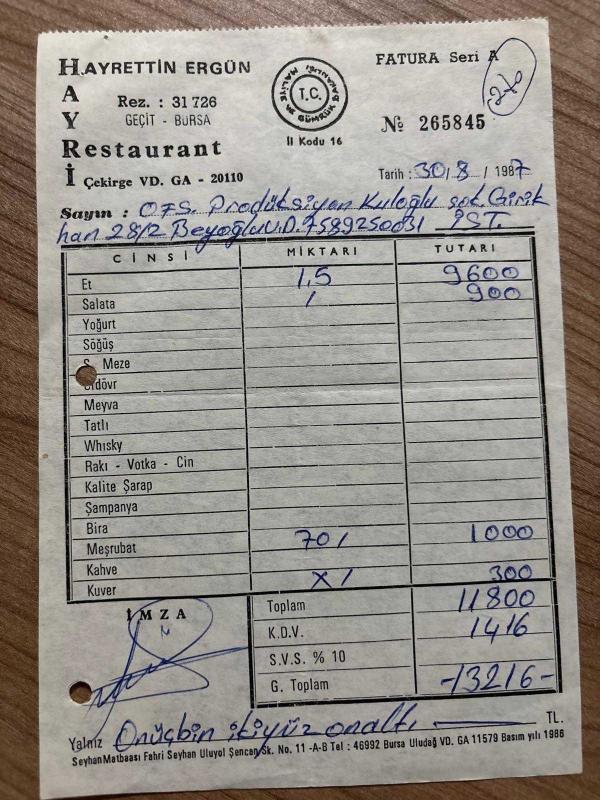 HAYRETTİN ERGÜN
FATURA Seri A
T.C. MALİYE VE GÜMRÜK BAKANLIĞI
Rez. : 31 726
GEÇİT - BURSA
HAYRİ
İl Kodu 16
№ 265845
Restaurant
Çekirge VD. GA - 20110
Tarih : 30/8/1987
Sayın : OFS. Prodüksiyon Kuloğlu sok. Girik
han 28/2 Beyoğlu V.D. 7589250031 İST.
CİNSİ MİKTARI TUTARI
Et 1,5 9600
Salata 1 900
Yoğurt
Söğüş
S. Meze
Ordövr
Meyva
Tatlı
Whisky
Rakı - Votka - Cin
Kalite Şarap
Şampanya
Bira
Meşrubat 70 / 1000
Kahve
Kuver X/ 300
İMZA
Toplam 11800
K.D.V. 1416
S.V.S. % 10
G. Toplam -13216-
Yalnız Onüçbin ikiyüz onaltı TL.
Seyhan Matbaası Fahri Seyhan Uluyol Şencan Sk. No. 11 -A-B Tel : 46992 Bursa Uludağ VD. GA 11579 Basım yılı 1986